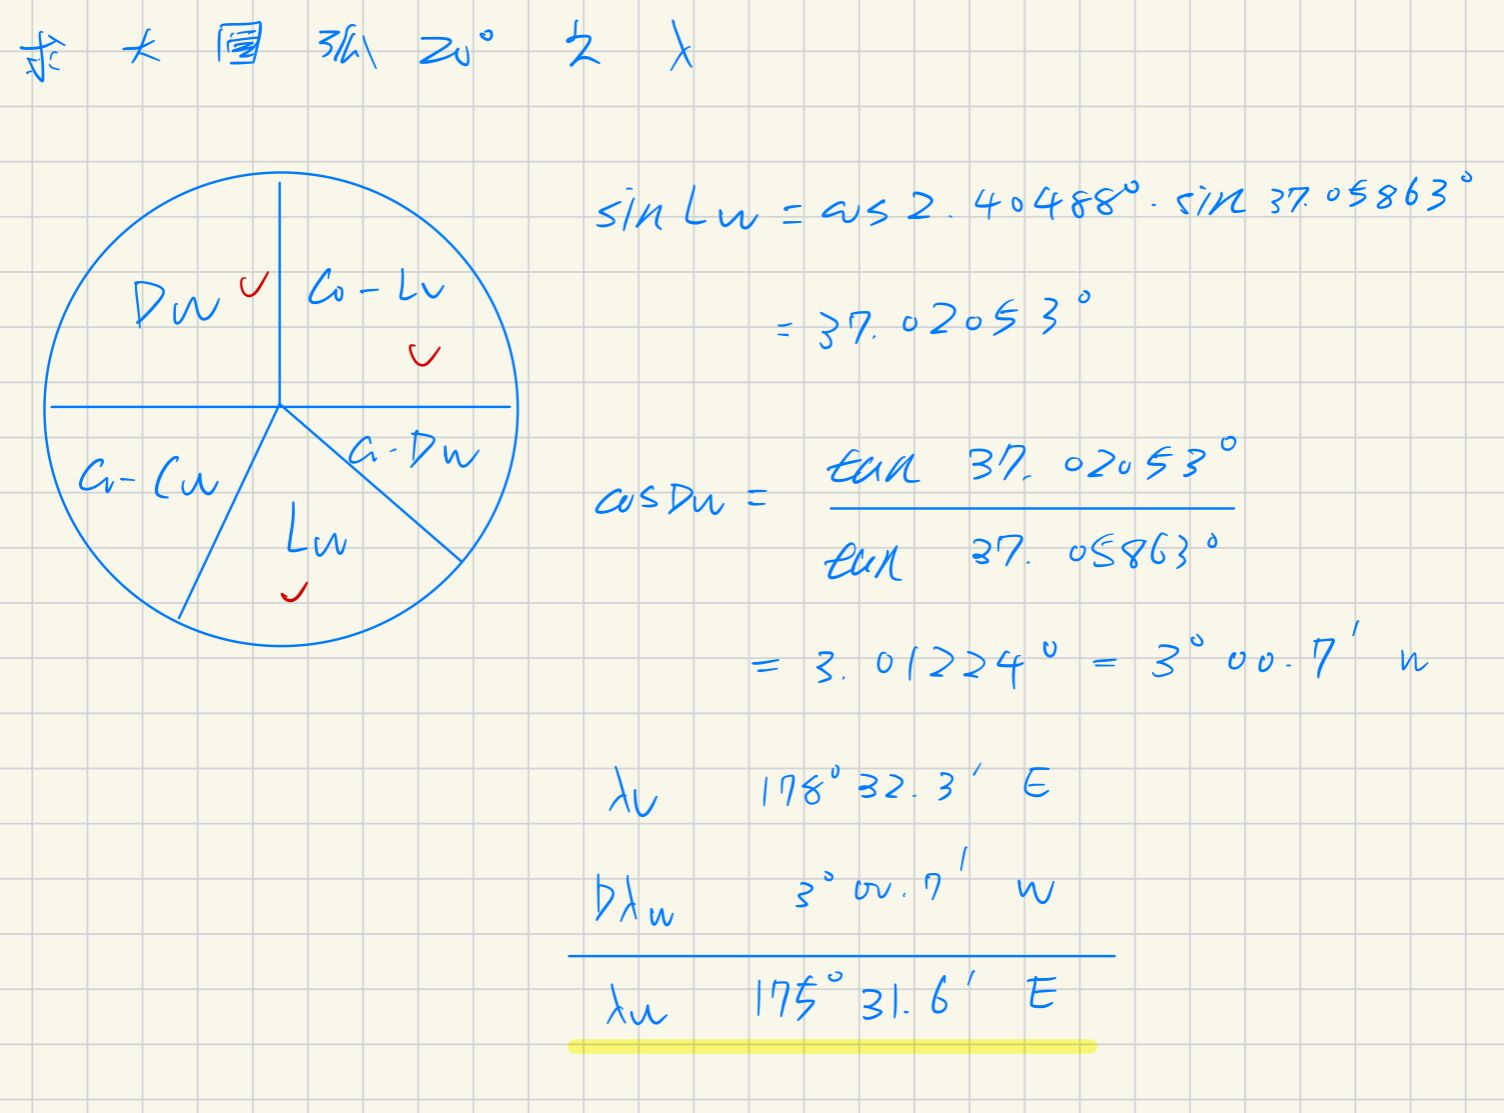 求 大 圈 弧 20° 之 λ
Dw Co-Lv
Co-Cw Lw Co-Dw
sin Lw = cos 2.40488° · sin 37.05863°
= 37.02053°
cos Dw = tan 37.02053° / tan 37.05863°
= 3.01224° = 3° 00.7' w
λv 178° 32.3' E
Dλw 3° 00.7' w
λw 175° 31.6' E